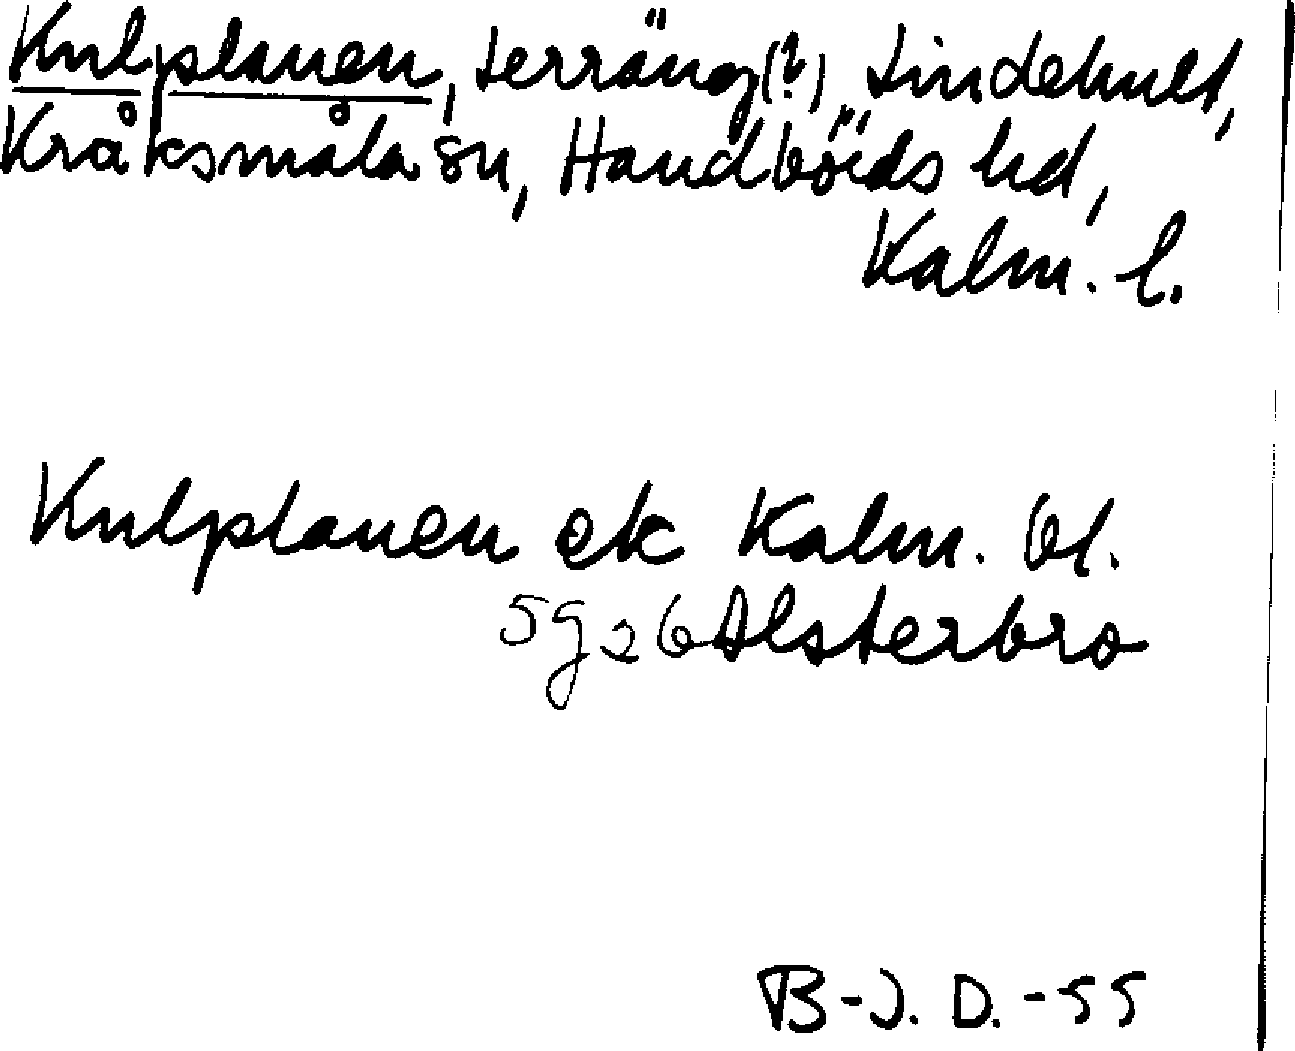 Kulplanen, terräng(?), Lindehult,
Kråksmåla sn, Handbörds hd,
Kalm. l.
Kulplanen ek Kalm. bl.
5g26 Alsterbro
B-J. D. -55